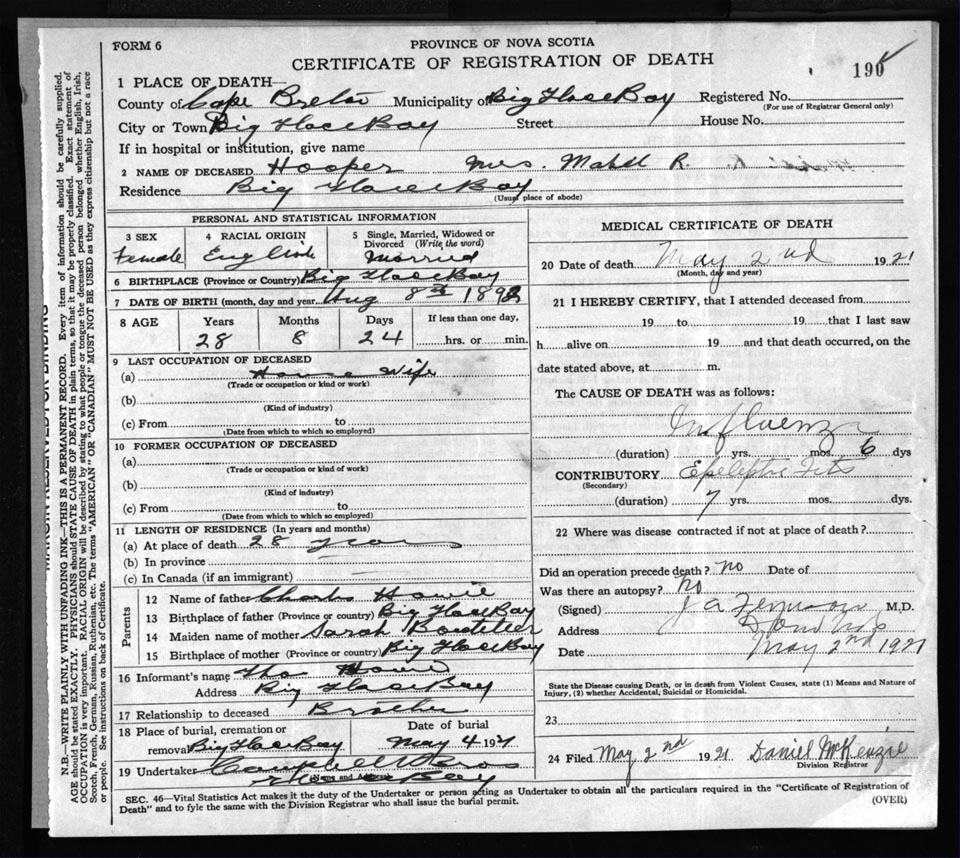 FORM 6
PROVINCE OF NOVA SCOTIA
CERTIFICATE OF REGISTRATION OF DEATH
190
1 PLACE OF DEATH—
County of Cape Breton Municipality of Big Glace Bay Registered No.
(For use of Registrar General only)
City or Town Big Glace Bay Street House No.
If in hospital or institution, give name
2 NAME OF DECEASED Hooper Mrs. Mabel R.
Residence Big Glace Bay
(Usual place of abode)
PERSONAL AND STATISTICAL INFORMATION
3 SEX Female
4 RACIAL ORIGIN English
5 Single, Married, Widowed or Divorced (Write the word) Married
6 BIRTHPLACE (Province or Country) Big Glace Bay
7 DATE OF BIRTH (month, day and year) Aug 8th 1892
8 AGE Years Months Days If less than one day,
28 8 24 hrs. or min.
9 LAST OCCUPATION OF DECEASED
(a) House Wife
(Trade or occupation or kind or work)
(b)
(Kind of industry)
(c) From to
(Date from which to which so employed)
10 FORMER OCCUPATION OF DECEASED
(a)
(Trade or occupation or kind of work)
(b)
(Kind of industry)
(c) From to
(Date from which to which so employed)
11 LENGTH OF RESIDENCE (In years and months)
(a) At place of death 28 years
(b) In province
(c) In Canada (if an immigrant)
Parents
12 Name of father Charles Howie
13 Birthplace of father (Province or country) Big Glace Bay
14 Maiden name of mother Sarah Boutilier
15 Birthplace of mother (Province or country) Big Glace Bay
16 Informant's name Tho Howie
Address Big Glace Bay
17 Relationship to deceased Brother
18 Place of burial, cremation or removal Big Glace Bay
Date of burial May 4 1921
19 Undertaker Campbell Bros
Glace Bay
MEDICAL CERTIFICATE OF DEATH
20 Date of death May 2nd 1921
(Month, day and year)
21 I HEREBY CERTIFY, that I attended deceased from
19 to 19 that I last saw
h alive on 19 and that death occurred, on the
date stated above, at m.
The CAUSE OF DEATH was as follows:
Influenza
(duration) yrs. mos. 6 dys
CONTRIBUTORY Epeleptic Fits
(Secondary)
(duration) 7 yrs. mos. dys.
22 Where was disease contracted if not at place of death?
Did an operation precede death? no Date of
Was there an autopsy? no
(Signed) J A Ferguson M.D.
Address
Date May 2nd 1921
State the Disease causing Death, or in death from Violent Causes, state (1) Means and Nature of
Injury, (2) whether Accidental, Suicidal or Homicidal.
23
24 Filed May 2nd 1921 Daniel McKenzie
Division Registrar
SEC. 46—Vital Statistics Act makes it the duty of the Undertaker or person acting as Undertaker to obtain all the particulars required in the "Certificate of Registration of
Death" and to fyle the same with the Division Registrar who shall issue the burial permit.
(OVER)
MARGIN RESERVED FOR BINDING
N.B.—WRITE PLAINLY WITH UNFADING INK—THIS IS A PERMANENT RECORD. Every item of information should be carefully supplied.
AGE should be stated EXACTLY. PHYSICIANS should STATE CAUSE OF DEATH in plain terms, so that it may be properly classified. Exact statement of
OCCUPATION is very important. RACIAL ORIGIN will be described by stating to what people or tongue the deceased person belonged whether English, Irish,
Scotch, French, German, Russian, Ruthenian, etc. The terms "AMERICAN" or "CANADIAN" MUST NOT BE USED as they express citizenship but not a race
or people. See instructions on back of Certificate.